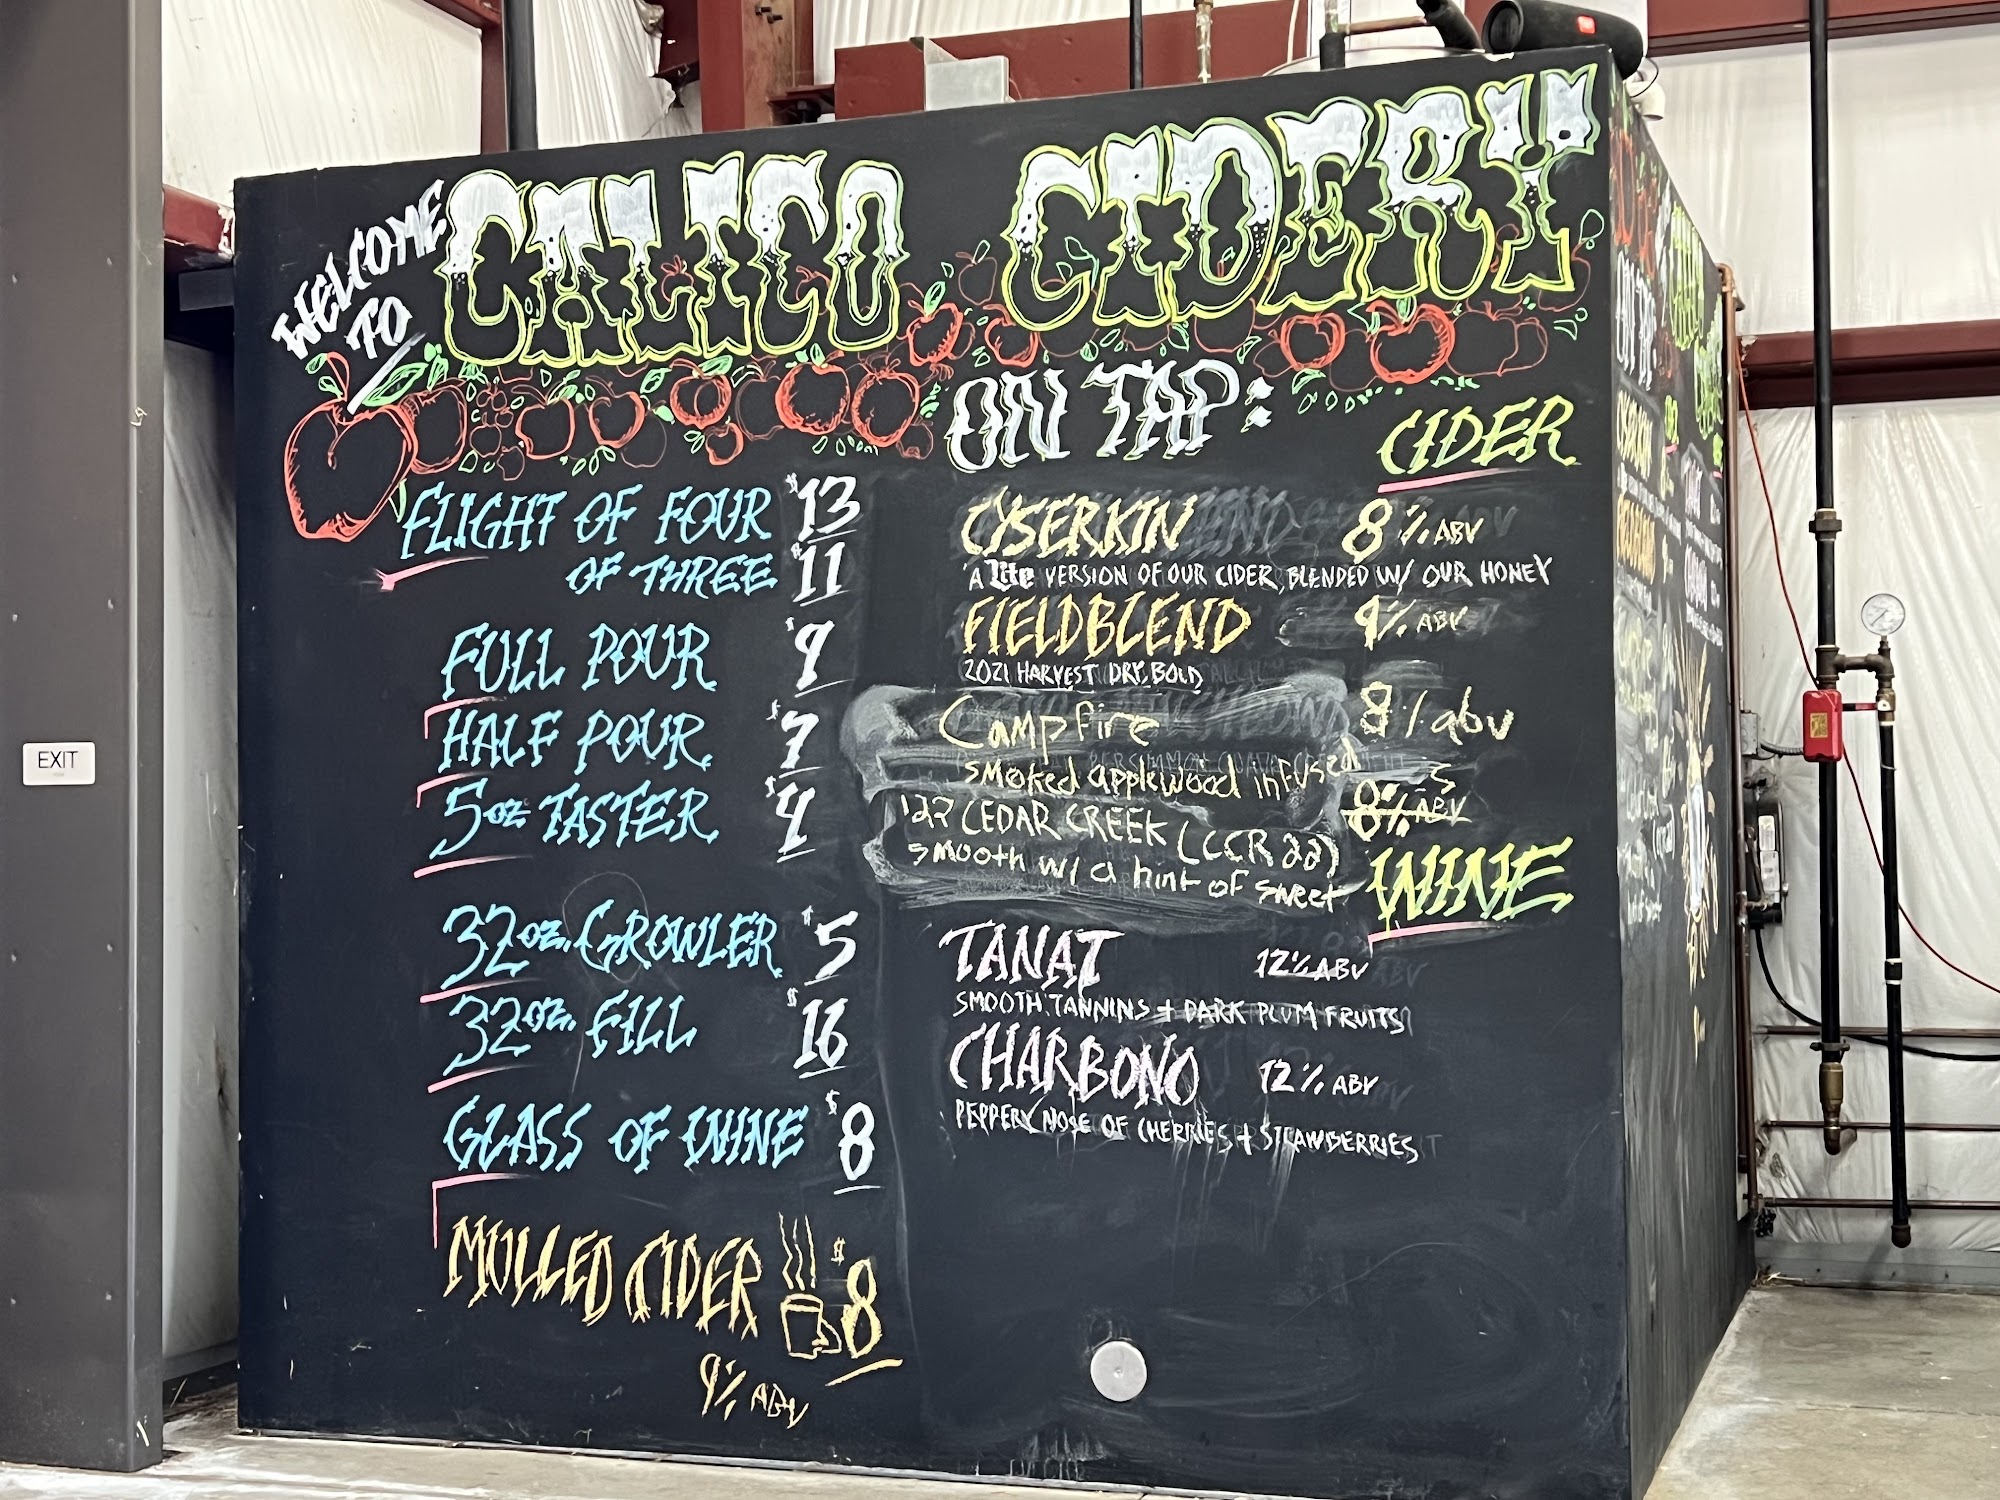 EXIT
WELCOME TO CALICO CIDERY
FLIGHT OF FOUR $13
OF THREE $11
FULL POUR $9
HALF POUR $7
5oz TASTER $4
32oz. GROWLER $5
32oz. FILL $16
GLASS OF WINE $8
MULLED CIDER $8
9% ABV
ON TAP:
CIDER
CYSERKIN 8% ABV
A Lite VERSION OF OUR CIDER, BLENDED W/ OUR HONEY
FIELDBLEND 9% ABV
2021 HARVEST DRY, BOLD
Campfire 8% abv
smoked applewood infused
'22 CEDAR CREEK (CCR 22) 8% ABV
smooth w/ a hint of sweet
WINE
TANAT 12% ABV
SMOOTH TANNINS + DARK PLUM FRUITS
CHARBONO 12% ABV
PEPPERY NOSE OF CHERRIES + STRAWBERRIES